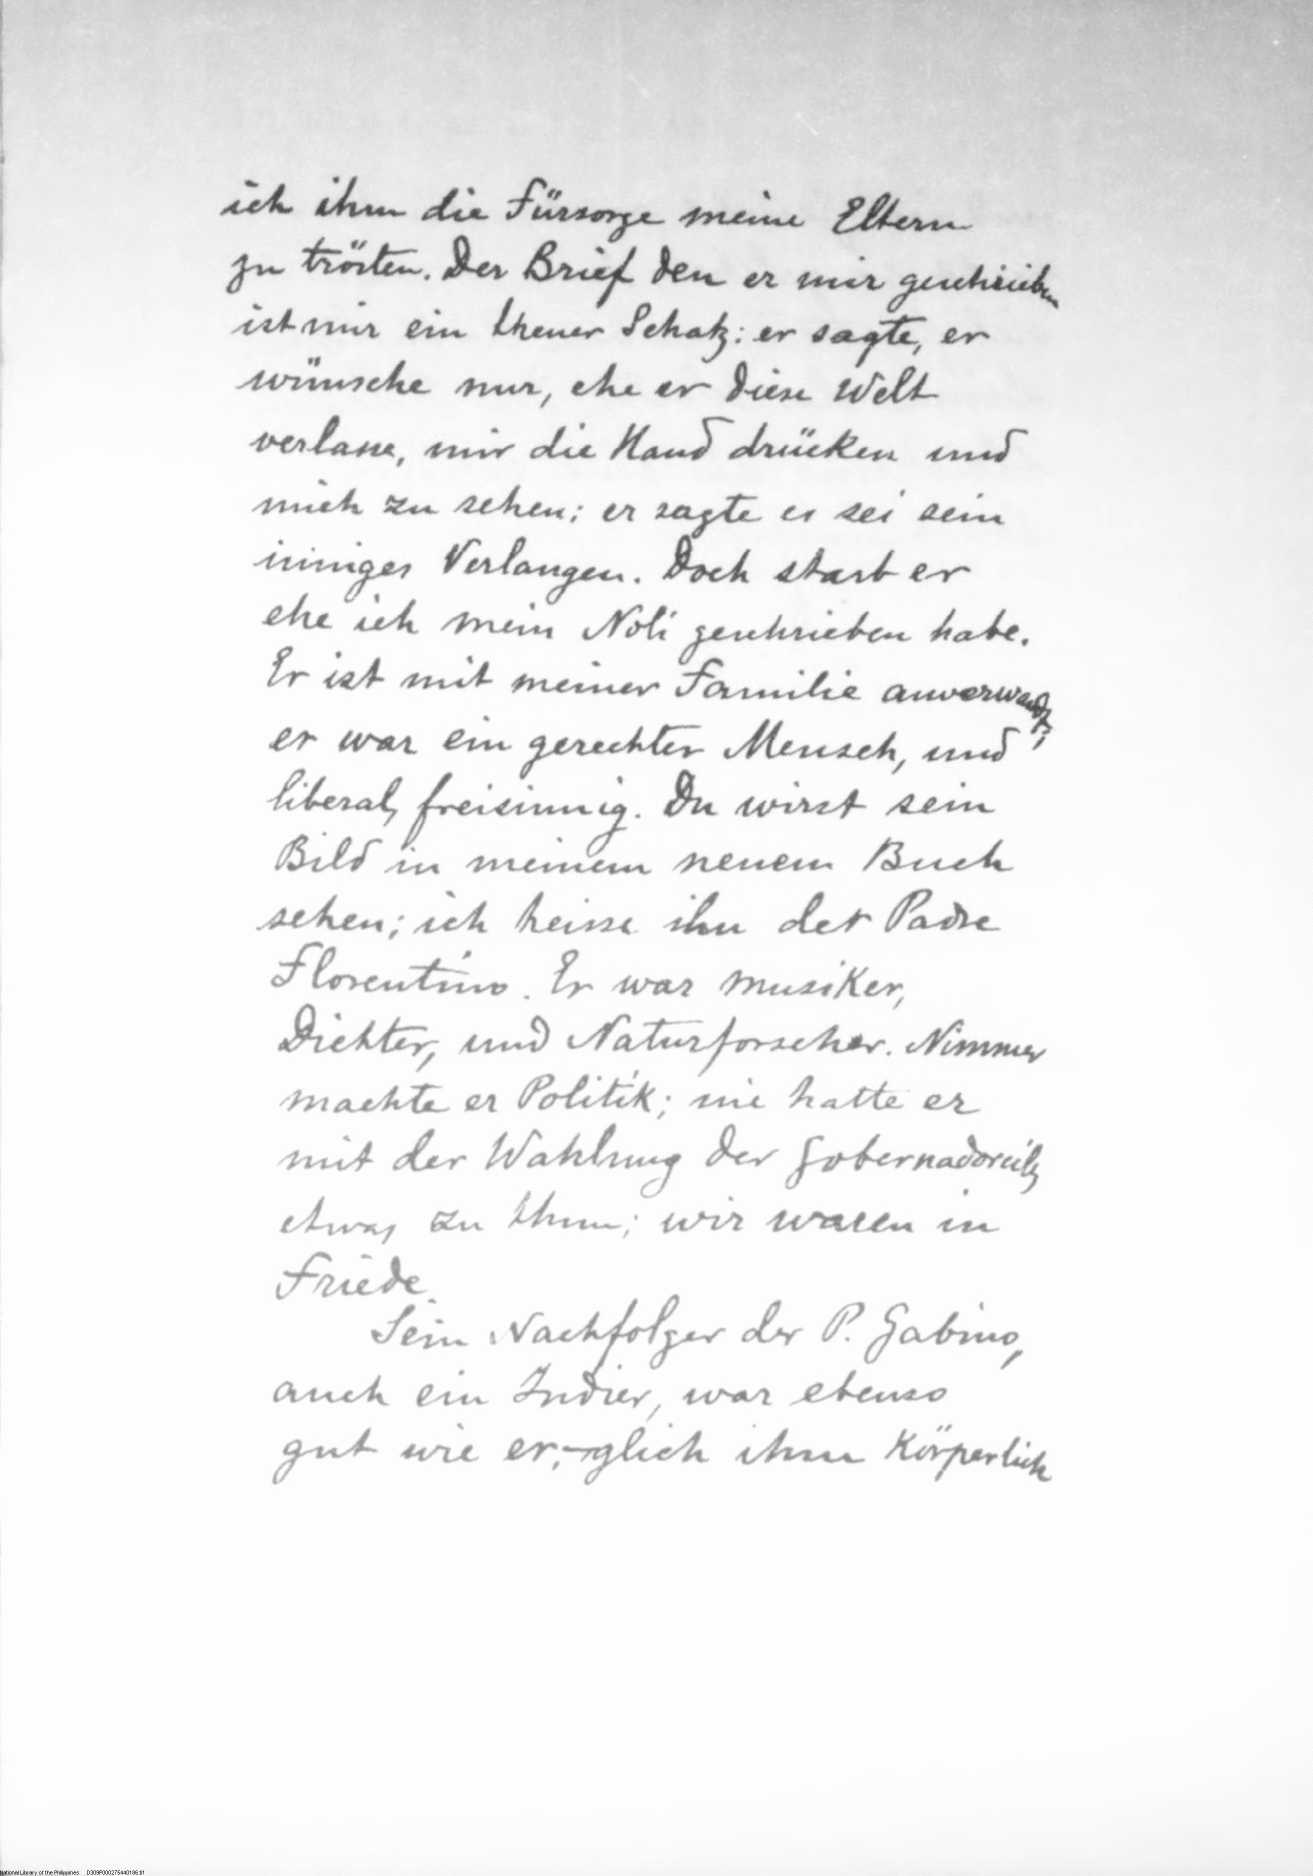 ich ihm die Fürsorge meine Eltern
zu trösten. Der Brief den er mir geschrieben
ist mir ein theuer Schatz: er sagte, er
wünsche nur, ehe er diese Welt
verlasse, mir die Hand drücken und
mich zu sehen; er sagte es sei sein
inniges Verlangen. Doch starb er
ehe ich mein Noli geschrieben habe.
Er ist mit meiner Familie anverwandt;
er war ein gerechter Mensch, und
liberal, freisinnig. Du wirst sein
Bild in meinem neuem Buch
sehen; ich heisse ihn der Padre
Florentino. Er war Musiker,
Dichter, und Naturforscher. Nimmer
machte er Politik; nie hatte er
mit der Wahlung der
etwas zu thun; wir waren in
Friede.
Sein Nachfolger der P. Gabino,
auch ein Indier, war ebenso
gut wie er, glich ihm Körperlich
National Library of the Philippines